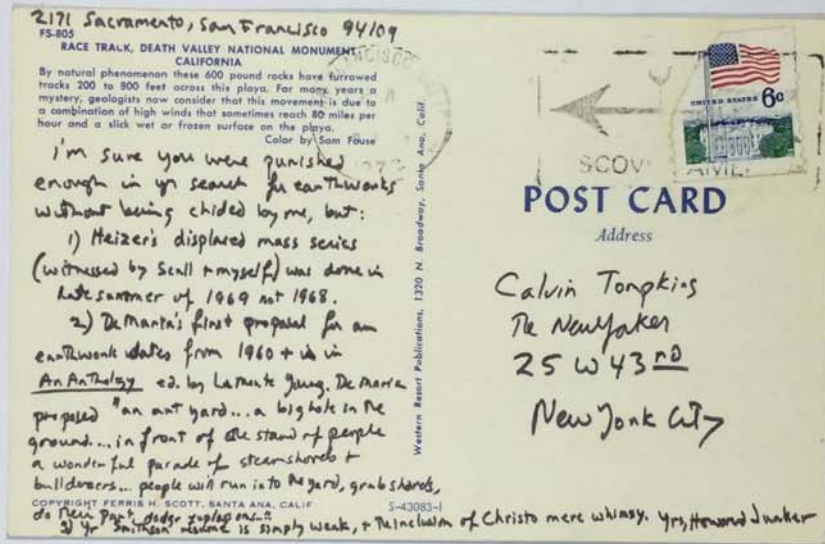 2171 Sacramento, San Francisco 94109
FS-805
RACE TRACK, DEATH VALLEY NATIONAL MONUMENT
CALIFORNIA
By natural phenomenon these 600 pound rocks have furrowed
tracks 200 to 800 feet across this playa. For many years a
mystery, geologists now consider that this movement is due to
a combination of high winds that sometimes reach 80 miles per
hour and a slick wet or frozen surface on the playa.
Color by Sam Fouse
I'm sure you were punished
enough in yr search for earthworks
without being chided by me, but:
1) Heizer's displaced mass series
(witnessed by Scull + myself) was done in
late summer of 1969 not 1968.
2) De Maria's first proposal for an
earthwork dates from 1960 + is in
An Anthology ed. by LaMonte Young. De Maria
proposed "an art yard... a big hole in the
ground... in front of the stand of people
a wonderful parade of steamshovels +
bulldozers... people will run into the yard, grab shovels,
do their part, dodge explosions..."
3) Yr Smithson resume is simply weak, + the inclusion of Christo mere whimsy. Yrs, Howard Junker
COPYRIGHT FERRIS H. SCOTT, SANTA ANA, CALIF
S-43083-1
Western Resort Publications, 1320 N. Broadway, Santa Ana, Calif.
NCISCO
SCOV AME
UNITED STATES 6c
POST CARD
Address
Calvin Tompkins
The New Yorker
25 W 43RD
New York City